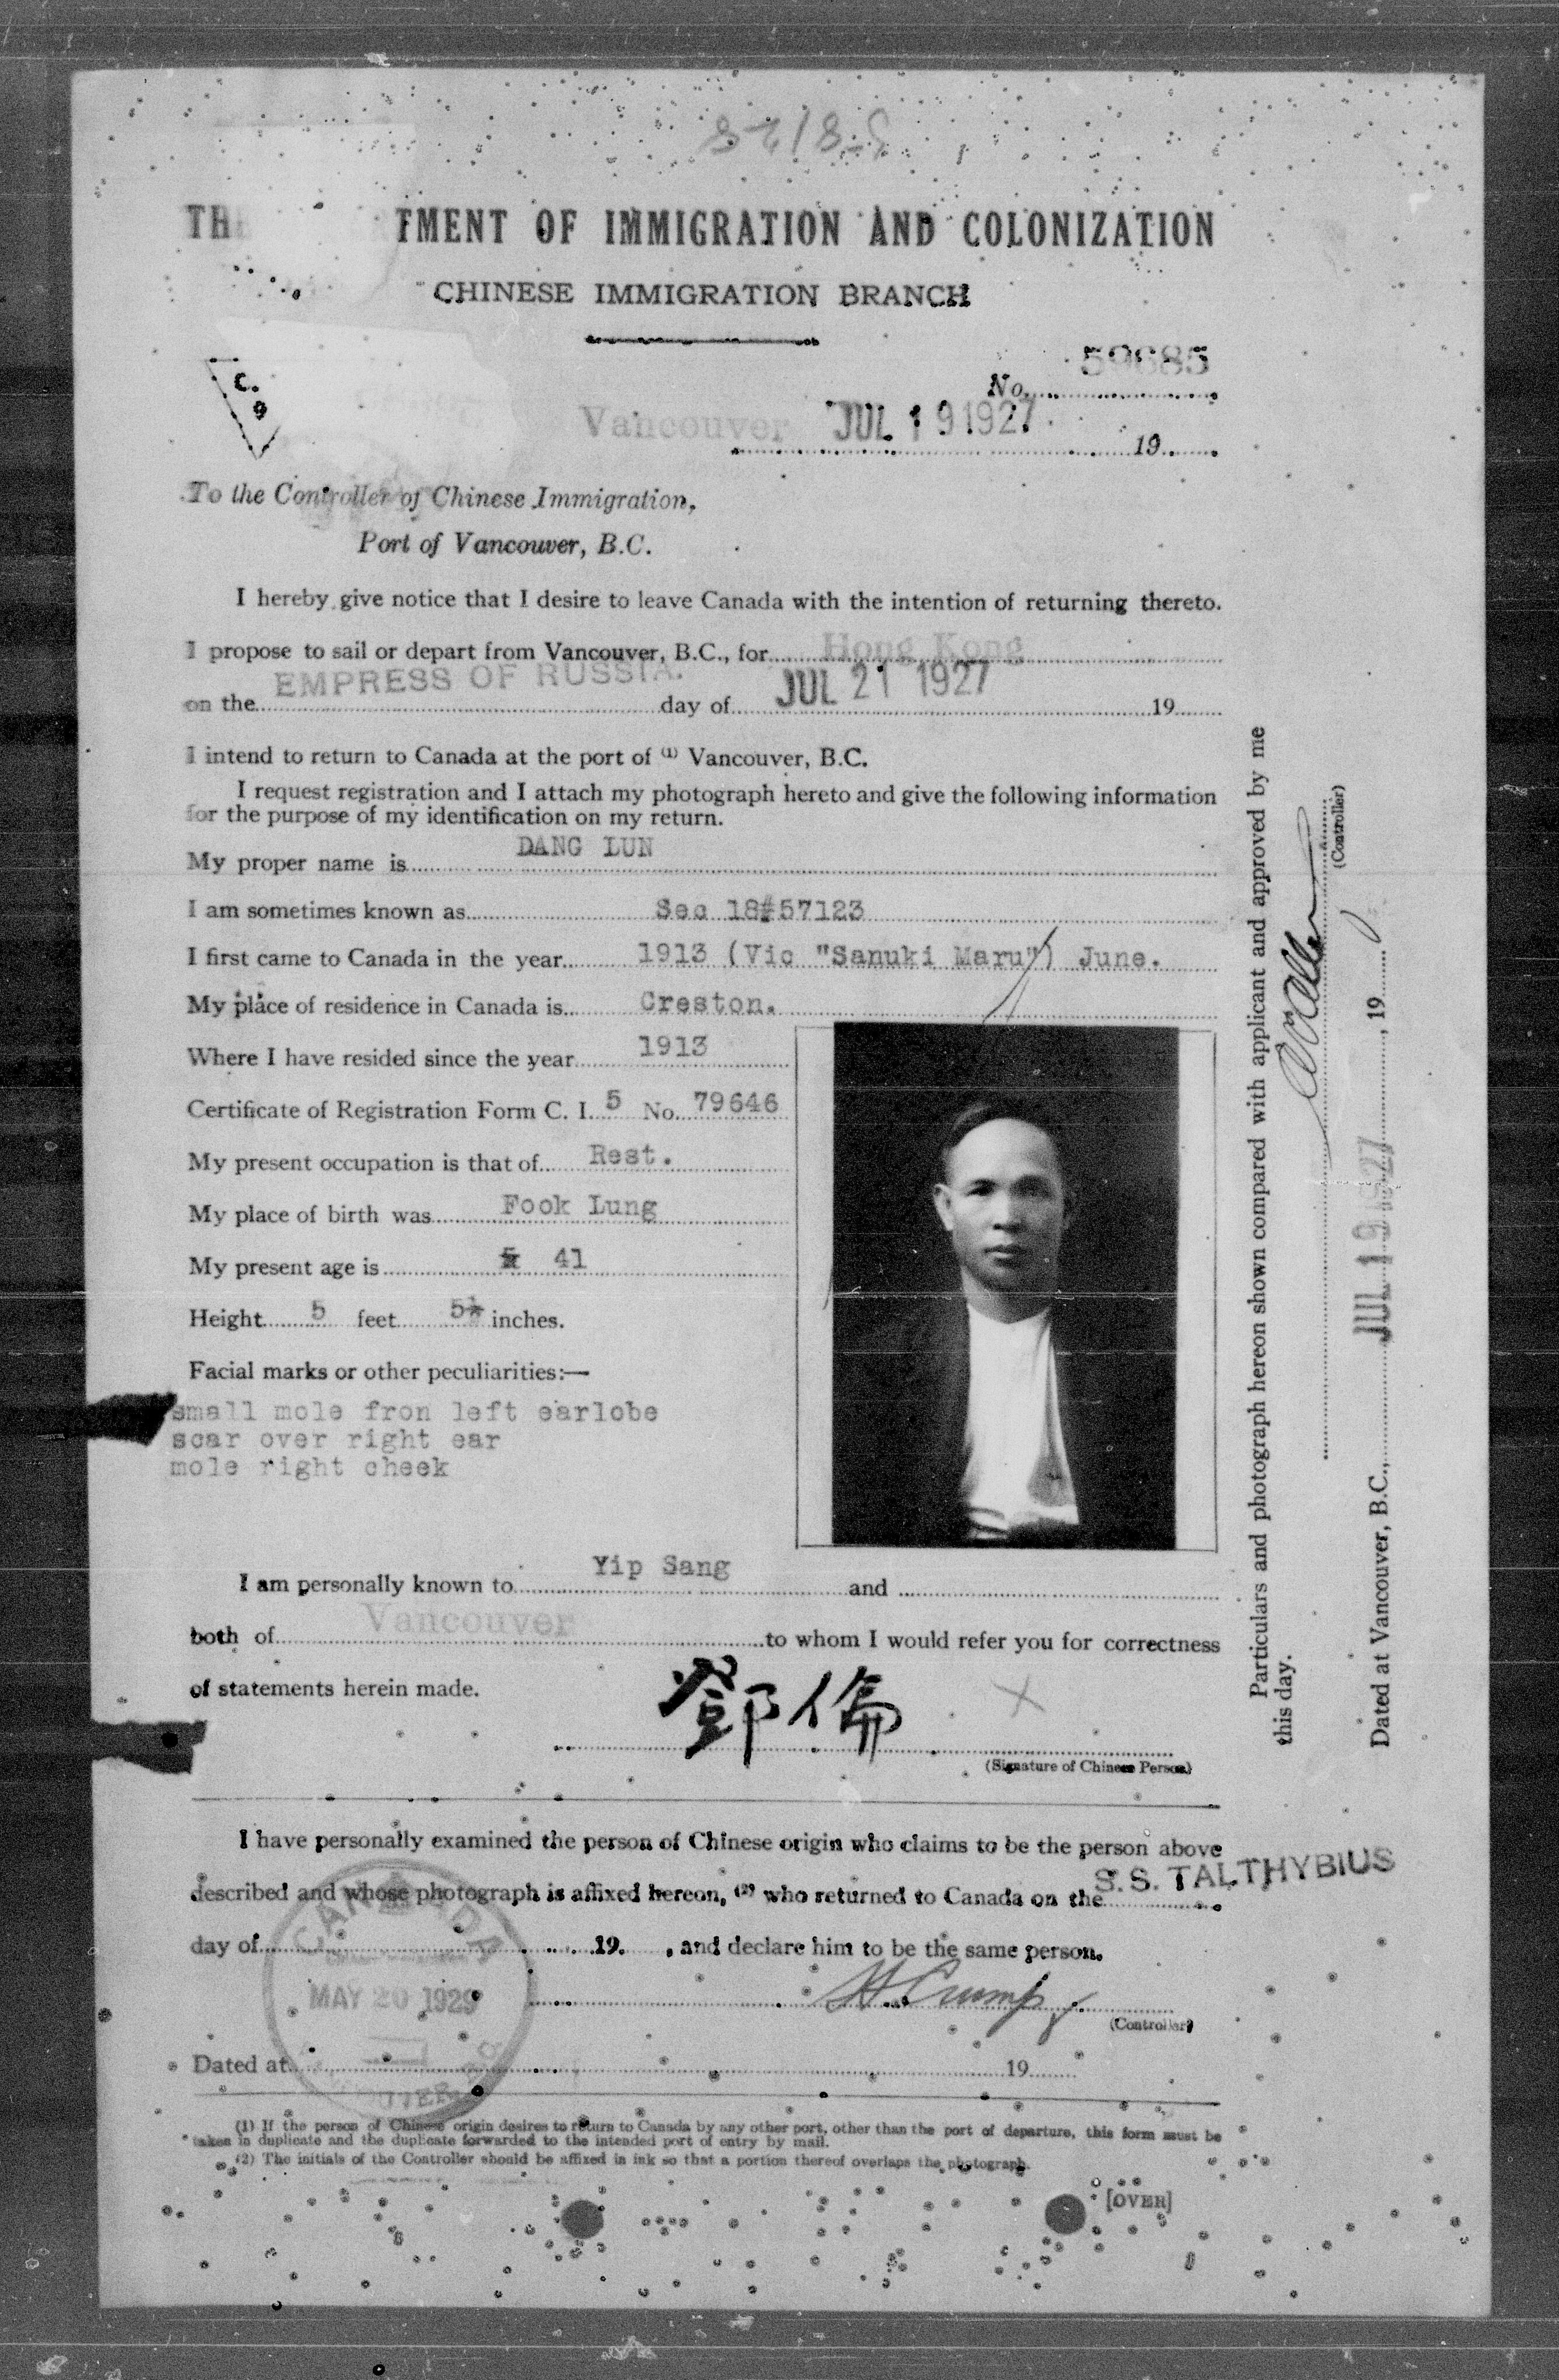 TH TMENT OF IMMIGRATION AND COLONIZATION
CHINESE IMMIGRATION BRANCH
C.
9
No. 59685
Vancouver JUL 19 1927 19
To the Controller of Chinese Immigration,
Port of Vancouver, B.C.
I hereby give notice that I desire to leave Canada with the intention of returning thereto.
I propose to sail or depart from Vancouver, B.C., for Hong Kong
EMPRESS OF RUSSIA.
on the day of JUL 21 1927 19
I intend to return to Canada at the port of (1) Vancouver, B.C.
I request registration and I attach my photograph hereto and give the following information
for the purpose of my identification on my return.
My proper name is DANG LUN
I am sometimes known as Sec 18#57123
I first came to Canada in the year 1913 (Vic "Sanuki Maru") June.
My place of residence in Canada is Creston.
Where I have resided since the year 1913
Certificate of Registration Form C. I. 5 No. 79646
My present occupation is that of Rest.
My place of birth was Fook Lung
My present age is 41
Height 5 feet 5½ inches.
Facial marks or other peculiarities:—
small mole fron left earlobe
scar over right ear
mole right cheek
I am personally known to Yip Sang and
both of Vancouver to whom I would refer you for correctness
of statements herein made.
鄧倫
(Signature of Chinese Person)
I have personally examined the person of Chinese origin who claims to be the person above
described and whose photograph is affixed hereon, (2) who returned to Canada on the S.S. TALTHYBIUS
day of 19 , and declare him to be the same person.
H Crump
(Controller)
CANADA
MAY 20 1929
Dated at 19
(1) If the person of Chinese origin desires to return to Canada by any other port, other than the port of departure, this form must be
taken in duplicate and the duplicate forwarded to the intended port of entry by mail.
(2) The initials of the Controller should be affixed in ink so that a portion thereof overlaps the photograph.
[OVER]
Particulars and photograph hereon shown compared with applicant and approved by me
this day.
(Controller)
Dated at Vancouver, B.C., JUL 19 1927, 19